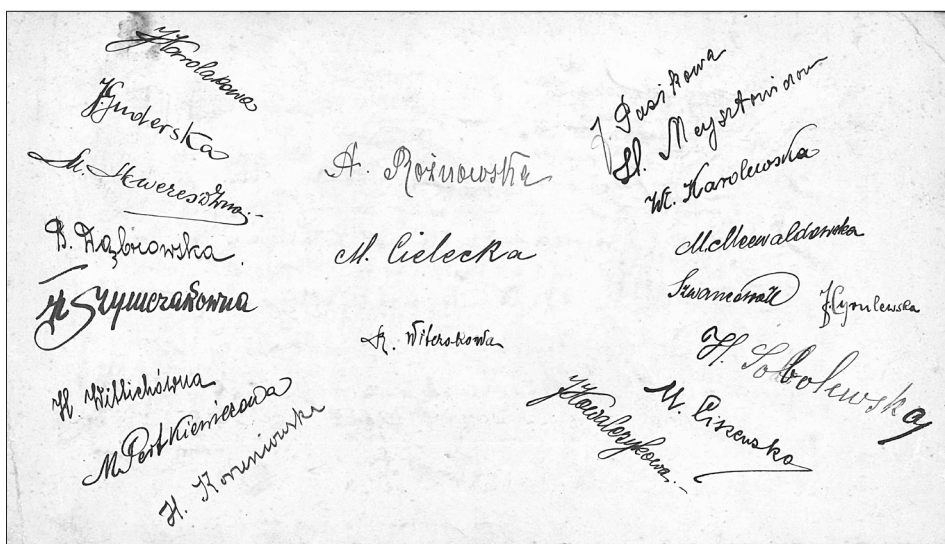 J. Karolakowa
J. Guderska
M. Skweresówna
B. Dąbrowska.
H. Szymczakówna
H. Willichówna
M. Pertkiewiczowa
H. Korsniowska
A. Rożnowska
M. Cielecka
S. Witczakowa
J. Pasikowa
H. Meysztowiczowa
Wł. Karolewska
M. Niewaldowska
J. Cyrulewska
H. Sobolewska
M. Ciszewska
J. Kowalczykowa